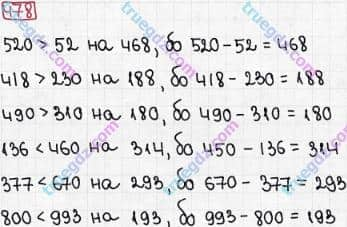 478
520 > 52 на 468, бо 520-52 = 468
418 > 230 на 188, бо 418 - 230 = 188
490 > 310 на 180, бо 490 - 310 = 180
136 < 460 на 314, бо 450 - 136 = 314
377 < 670 на 293, бо 670 - 377 = 293
800 < 993 на 193, бо 993 - 800 = 193
truegdz.com